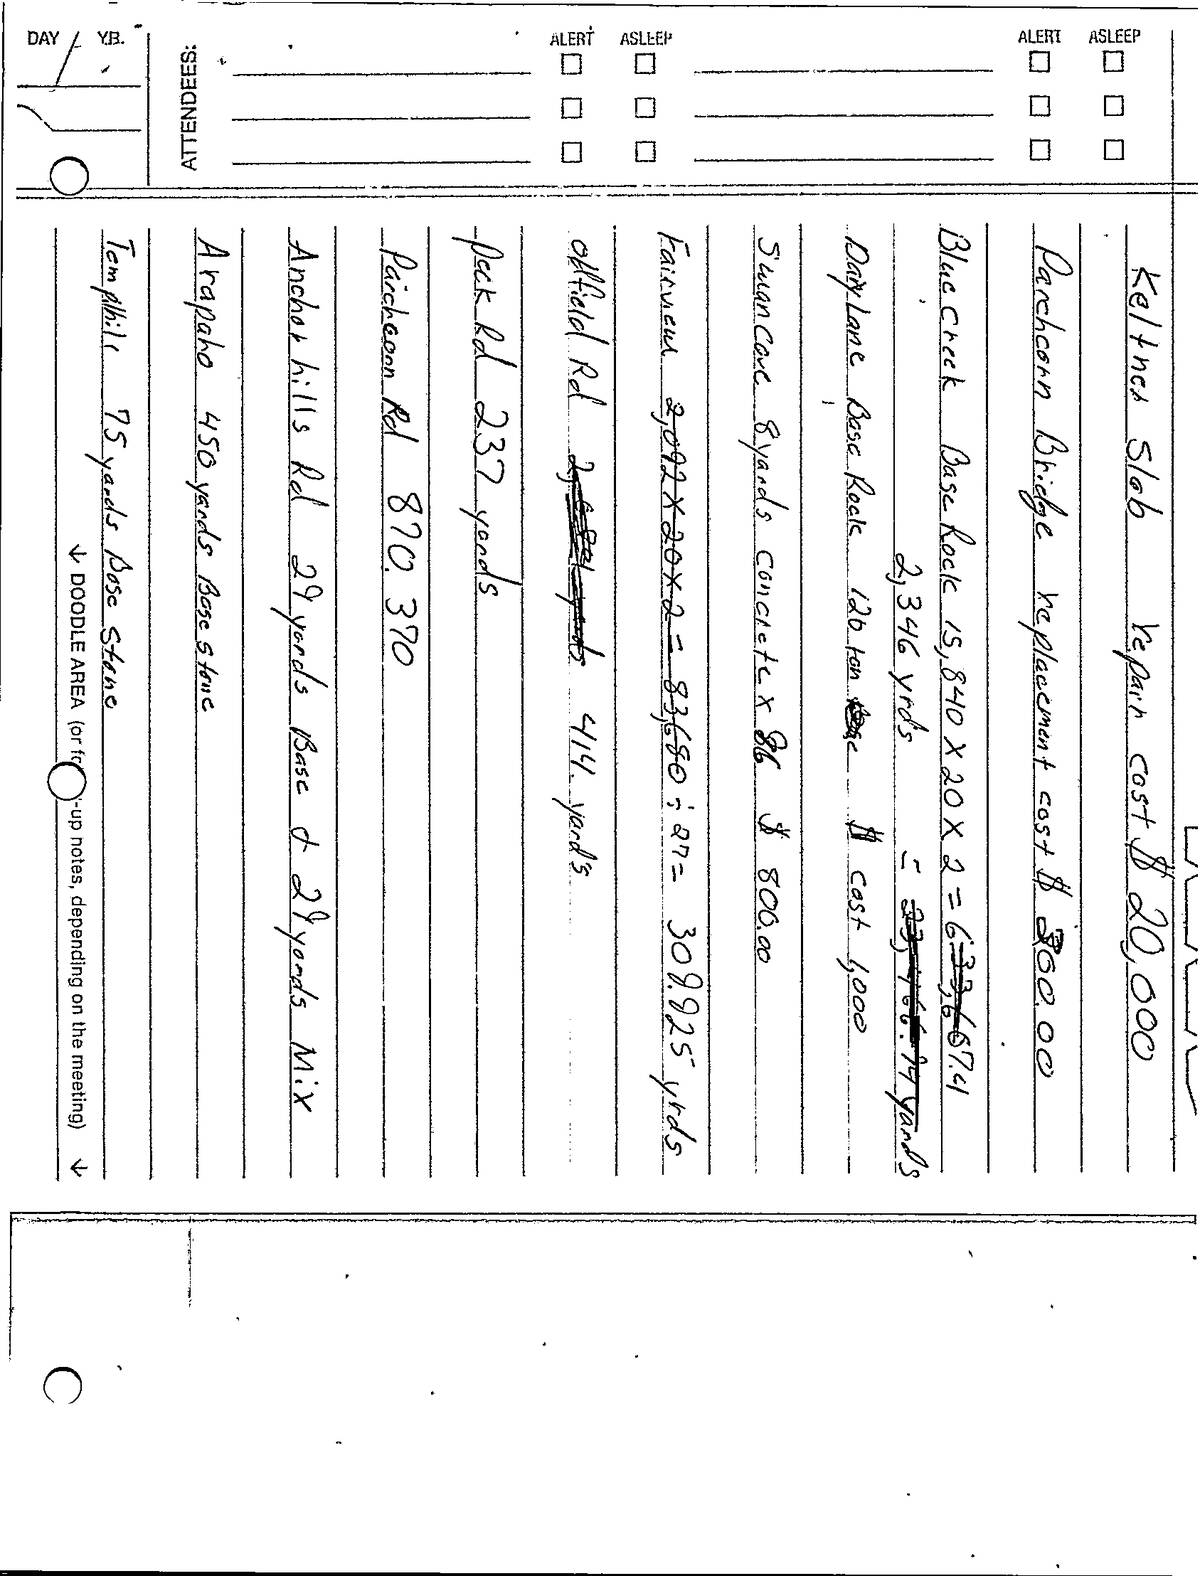 DAY / Y.B.
ATTENDEES:
ALERT ASLEEP
ALERT ASLEEP
Keltner Slab repair cost $ 20,000
Parchcorn Bridge replacement cost $ 300.00
Blue creek Base Rock 15,840 X 20 X 2 = 633,667.41
2,346 yrds = 23,466.74 yards
Dary Lane Base Rock 120 ton $ cost 1,000
Swan Cove 8 yards concrete x 86 $ 800.00
Fairview 2,092 X 20 X 2 = 83,680 ÷ 27 = 309.925 yrds
oldfield Rd 414 yards
Peck Rd 237 yards
Parchcorn Rd 870.370
Anchor hills Rd 29 yards Base & 29 yards Mix
Arapaho 450 yards Base stone
Templhill 75 yards Base Stone
↓ DOODLE AREA (or fo -up notes, depending on the meeting) ↓